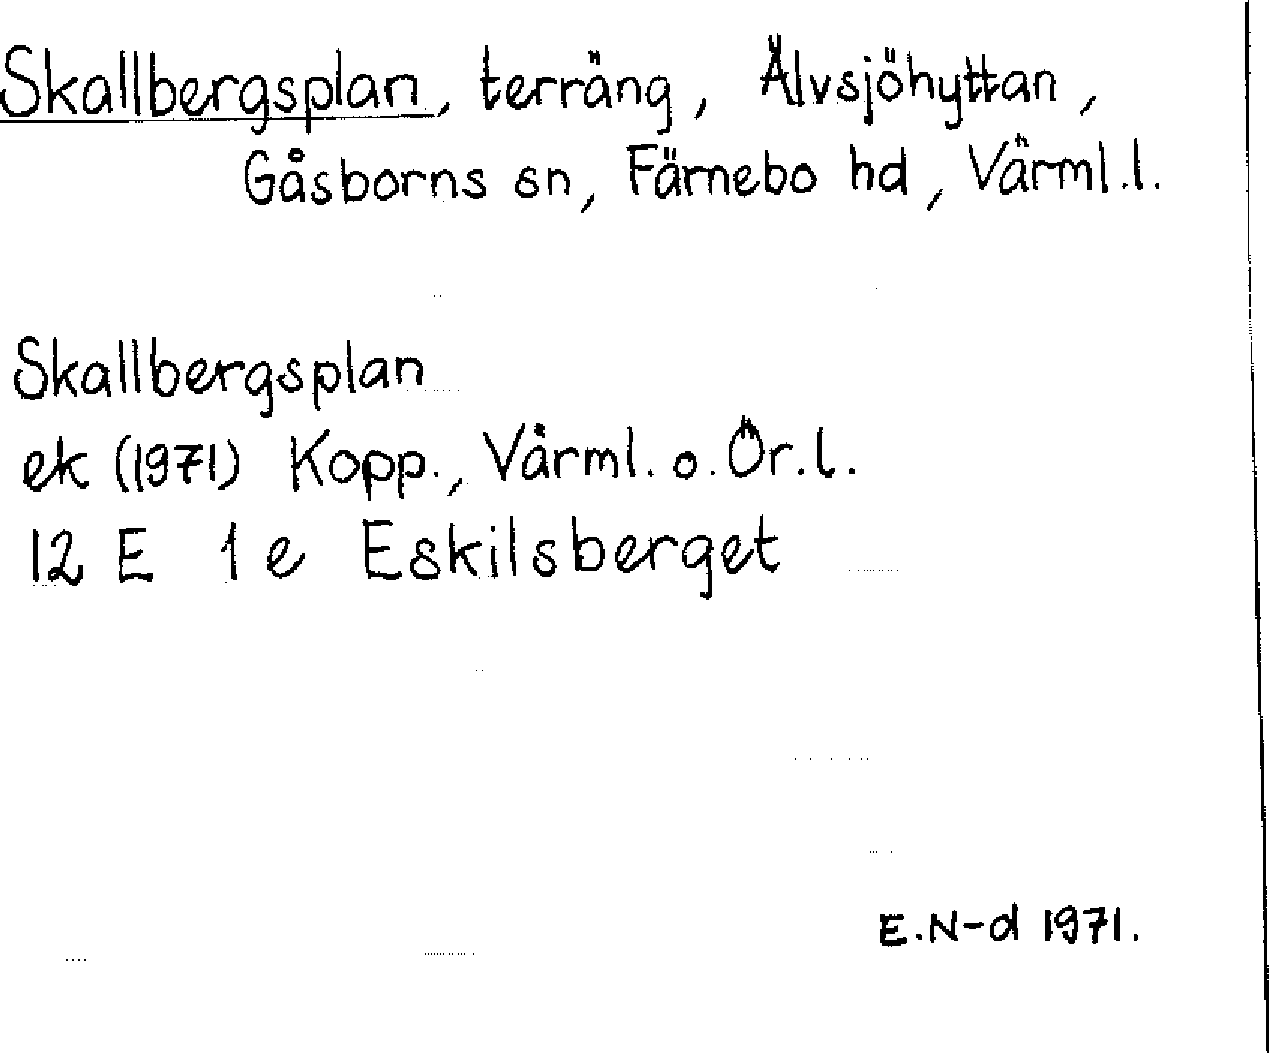 Skallbergsplan, terräng, Älvsjöhyttan,
Gåsborns sn, Färnebo hd, Värml.l.
Skallbergsplan
ek (1971) Kopp., Värml. o. Ör.l.
12 E 1 e Eskilsberget
E.N-d 1971.